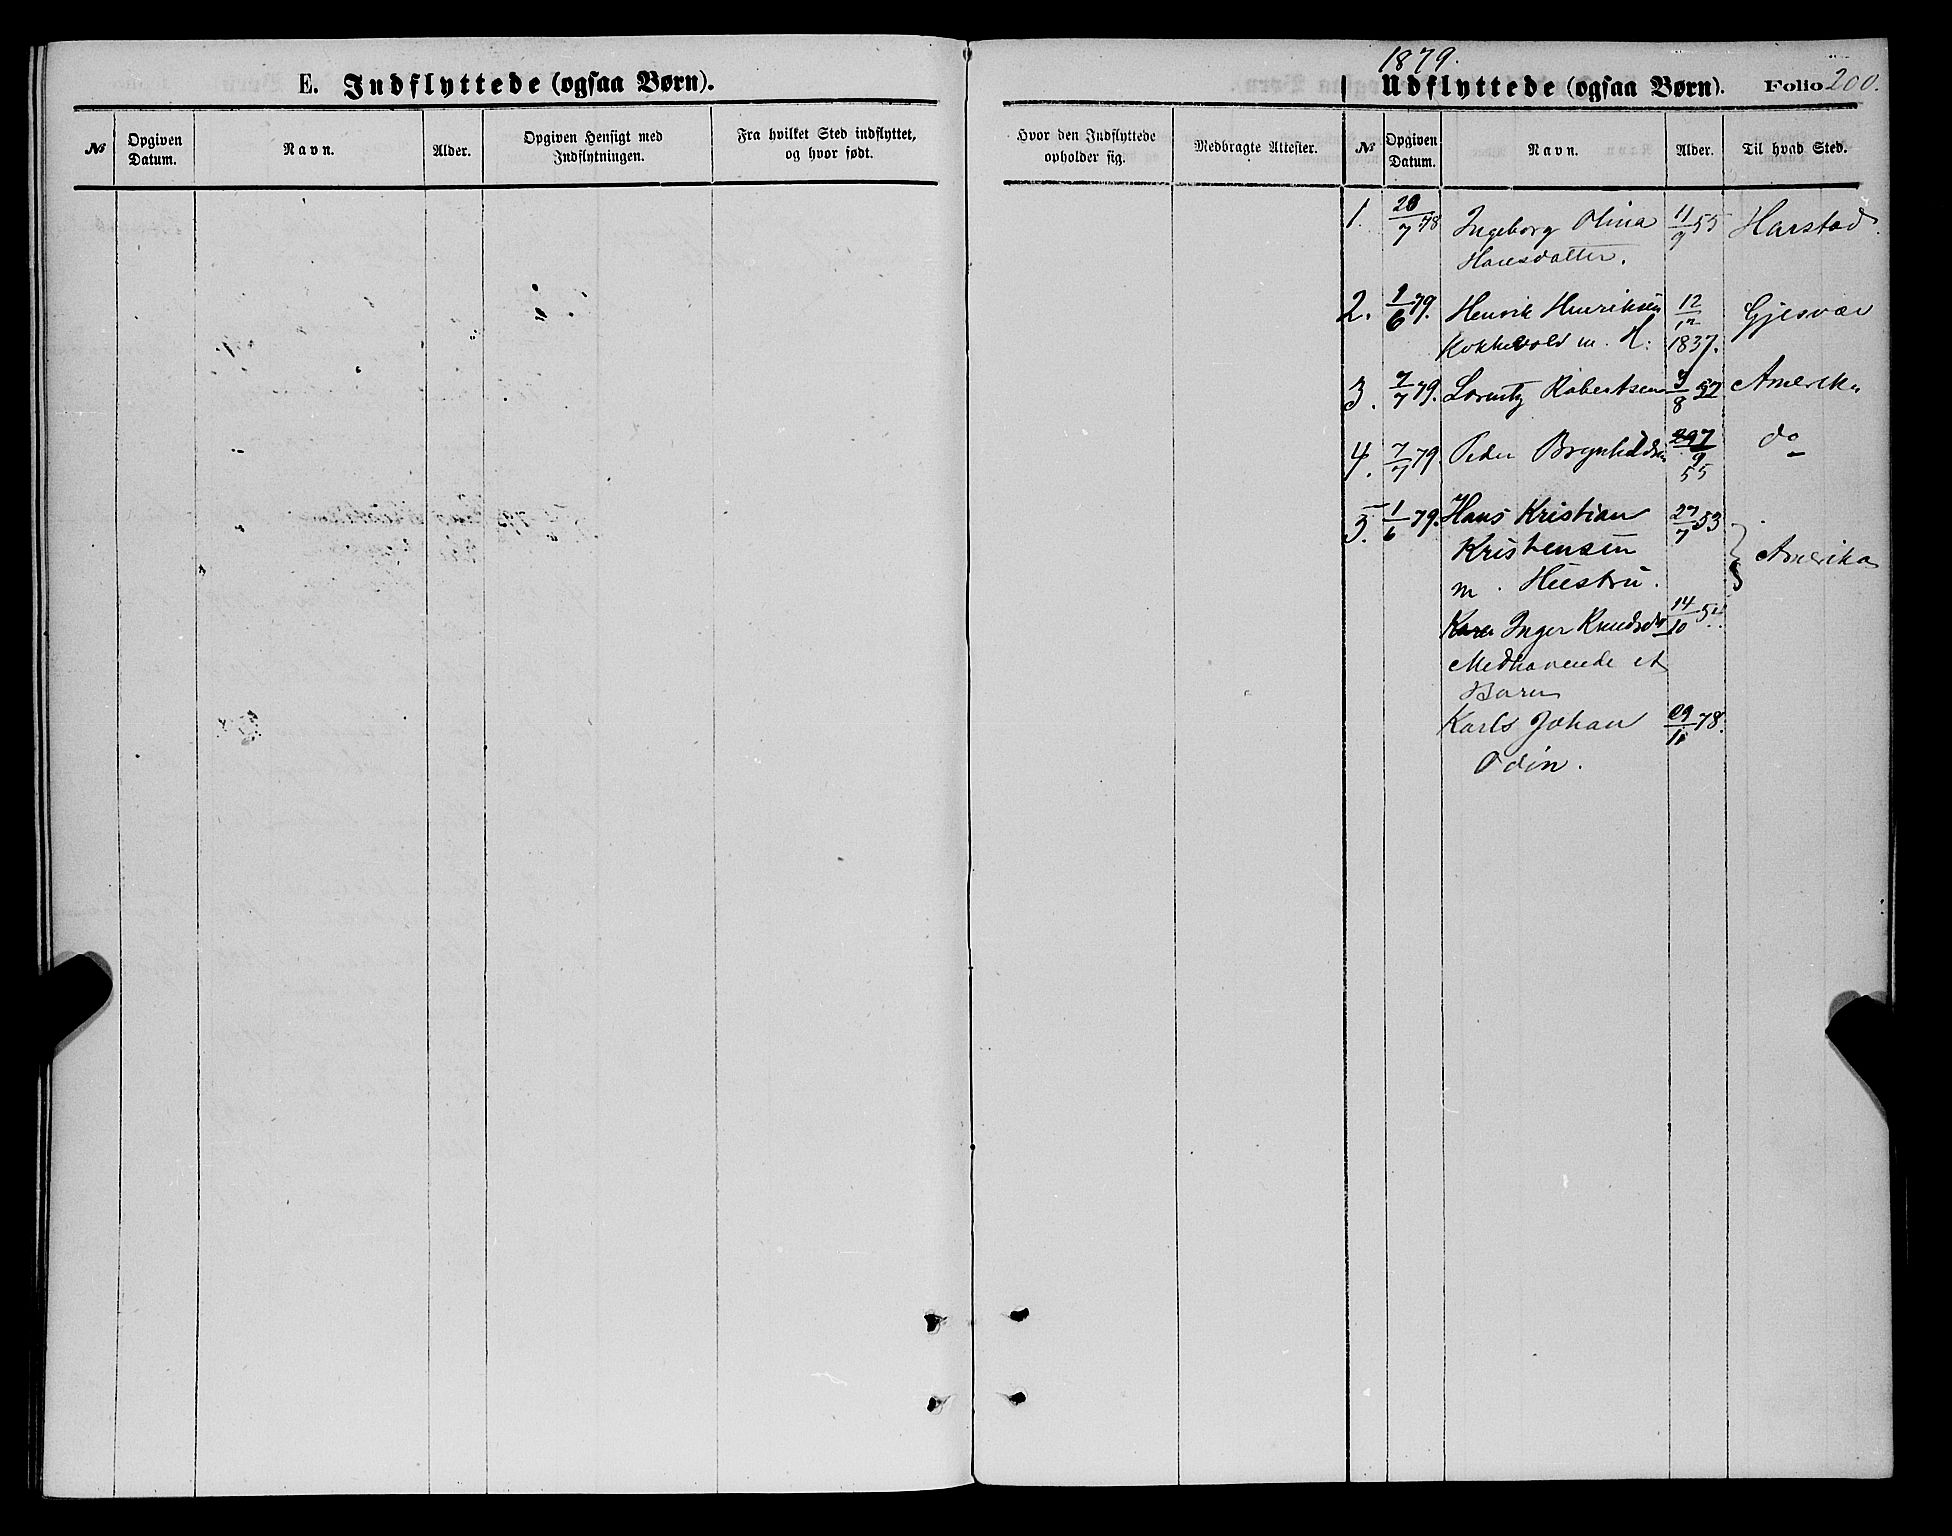 E. Indflyttede (ogsaa Børn).
№ Opgiven Datum. Navn. Alder. Opgiven Hensigt med Indflytningen. Fra hvilket Sted indflyttet, og hvor født.
1879.
Udflyttede (ogsaa Børn). Folio 200.
Hvor den Indflyttede opholder sig. Medbragte Attester. № Opgiven Datum. Navn. Alder. Til hvad Sted.
1. 20/7 78 Ingeborg Olina 11/9 55 Harstad
Hansdatter.
2. 1/6 79. Henrik Henriksen 12/12 Gjesvær
Kokkevold m. H: 1837.
3. 7/7 79. Lorentz Robertsen /8 52 Amerika
4. 7/7 79. Peder Brynhildsen 7/9 55 do
5. 1/6 79. Hans Kristian 27/7 53
Kristensen Amerika
m. Hustru.
Inger Knudsdr 14/10 5
Medhavende et
Barn
Karls Johan 29/11 78.
Odin.